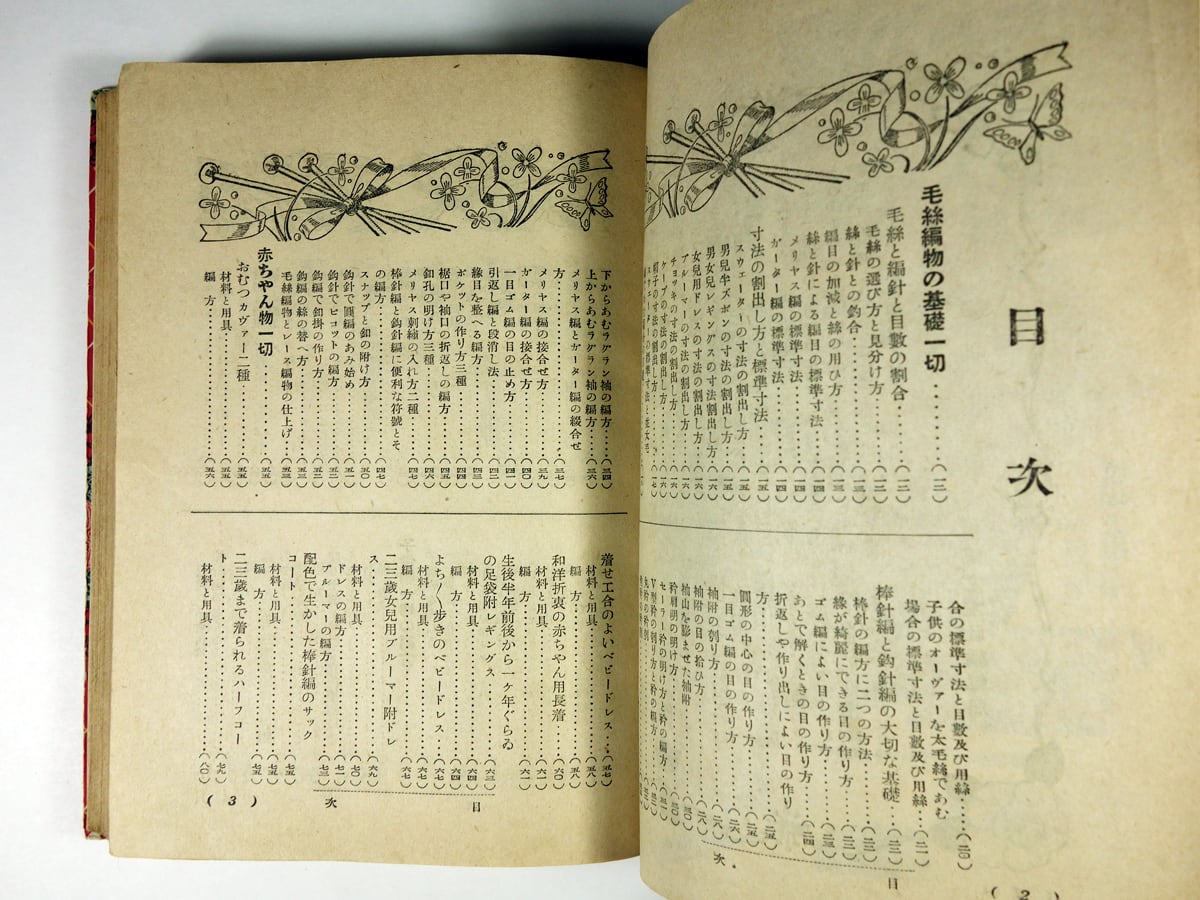 目次
毛絲編物の基礎一切………(一二)
毛絲と編針と目數の割合……(一二)
毛絲の選び方と見分け方……(一二)
絲と針との釣合……(一三)
編目の加減と絲の用ひ方……(一三)
絲と針による編目の標準寸法……(一四)
メリヤス編の標準寸法……(一四)
ガーター編の標準寸法……(一四)
寸法の割出し方と標準寸法……(一五)
スウェーターの寸法の割出し方……(一五)
男兒半ズボンの寸法の割出し方……(一五)
男女兒レギングスの寸法割出し方……(一六)
女兒用ドレスの寸法の割出し方……(一六)
ブルーマーの寸法の割出し方……(一六)
チョッキの寸法の割出し方……(一六)
ケープの寸法の割出し方……(一六)
帽子の寸法の割出し方……(一七)
合の標準寸法と目數及び用絲……(二〇)
子供のオーヴァーを太毛絲であむ
場合の標準寸法と目數及び用絲……(二一)
棒針編と鈎針編の大切な基礎……(二二)
棒針の編方に二つの方法……(二二)
緣が綺麗にできる目の作り方……(二三)
ゴム編によい目の作り方……(二三)
あとで解くときの目の作り方……(二四)
折返しや作り出しによい目の作り
方……(二五)
圓形の中心の目の作り方……(二五)
一目ゴム編の目の作り方……(二六)
袖附の刳り方……(二八)
袖附の目の拾ひ方……(二八)
袖山を膨ませた袖附……(三〇)
衿肩明の明け方……(三〇)
セーラー衿の明け方と衿の編方……(三一)
V型衿の刳り方と衿の編方……(三二)
目次
(2)
下からあむラグラン袖の編方……(三四)
上からあむラグラン袖の編方……(三六)
メリヤス編とガーター編の綴合せ
方……(三七)
メリヤス編の接合せ方……(三九)
ガーター編の接合せ方……(四〇)
一目ゴム編の目の止め方……(四一)
引返し編と段消し法……(四二)
緣目を整へる編方……(四三)
ポケットの作り方三種……(四四)
裾口や袖口の折返しの編方……(四五)
釦孔の明け方三種……(四六)
メリヤス刺繡の入れ方二種……(四七)
棒針編と鈎針編に便利な符號とそ
の編方……(四七)
スナップと釦の附け方……(五〇)
鈎針で圓編のあみ始め……(五一)
鈎針でピコットの編方……(五二)
鈎編で釦掛の作り方……(五二)
鈎編の絲の替へ方……(五三)
毛絲編物とレース編物の仕上げ……(五三)
赤ちやん物一切……(五五)
おむつカヴァー二種……(五五)
材料と用具……(五五)
編方……(五六)
着せ工合のよいベビードレス……(五七)
材料と用具……(五八)
編方……(五八)
和洋折衷の赤ちやん用長着……(六一)
材料と用具……(六一)
編方……(六一)
生後半年前後から一ケ年ぐらゐ
の足袋附レギングス……(六三)
材料と用具……(六四)
編方……(六四)
よち〳〵歩きのベビードレス……(六六)
材料と用具……(六七)
編方……(六七)
二三歲女兒用ブルーマー附ドレ
ス……(六九)
材料と用具……(七〇)
ドレスの編方……(七一)
ブルーマーの編方……(七三)
配色で生かした棒針編のサック
コート……(七五)
材料と用具……(七五)
編方……(七五)
二三歲まで着られるハーフコー
ト……(七九)
材料と用具……(八〇)
目次
(3)